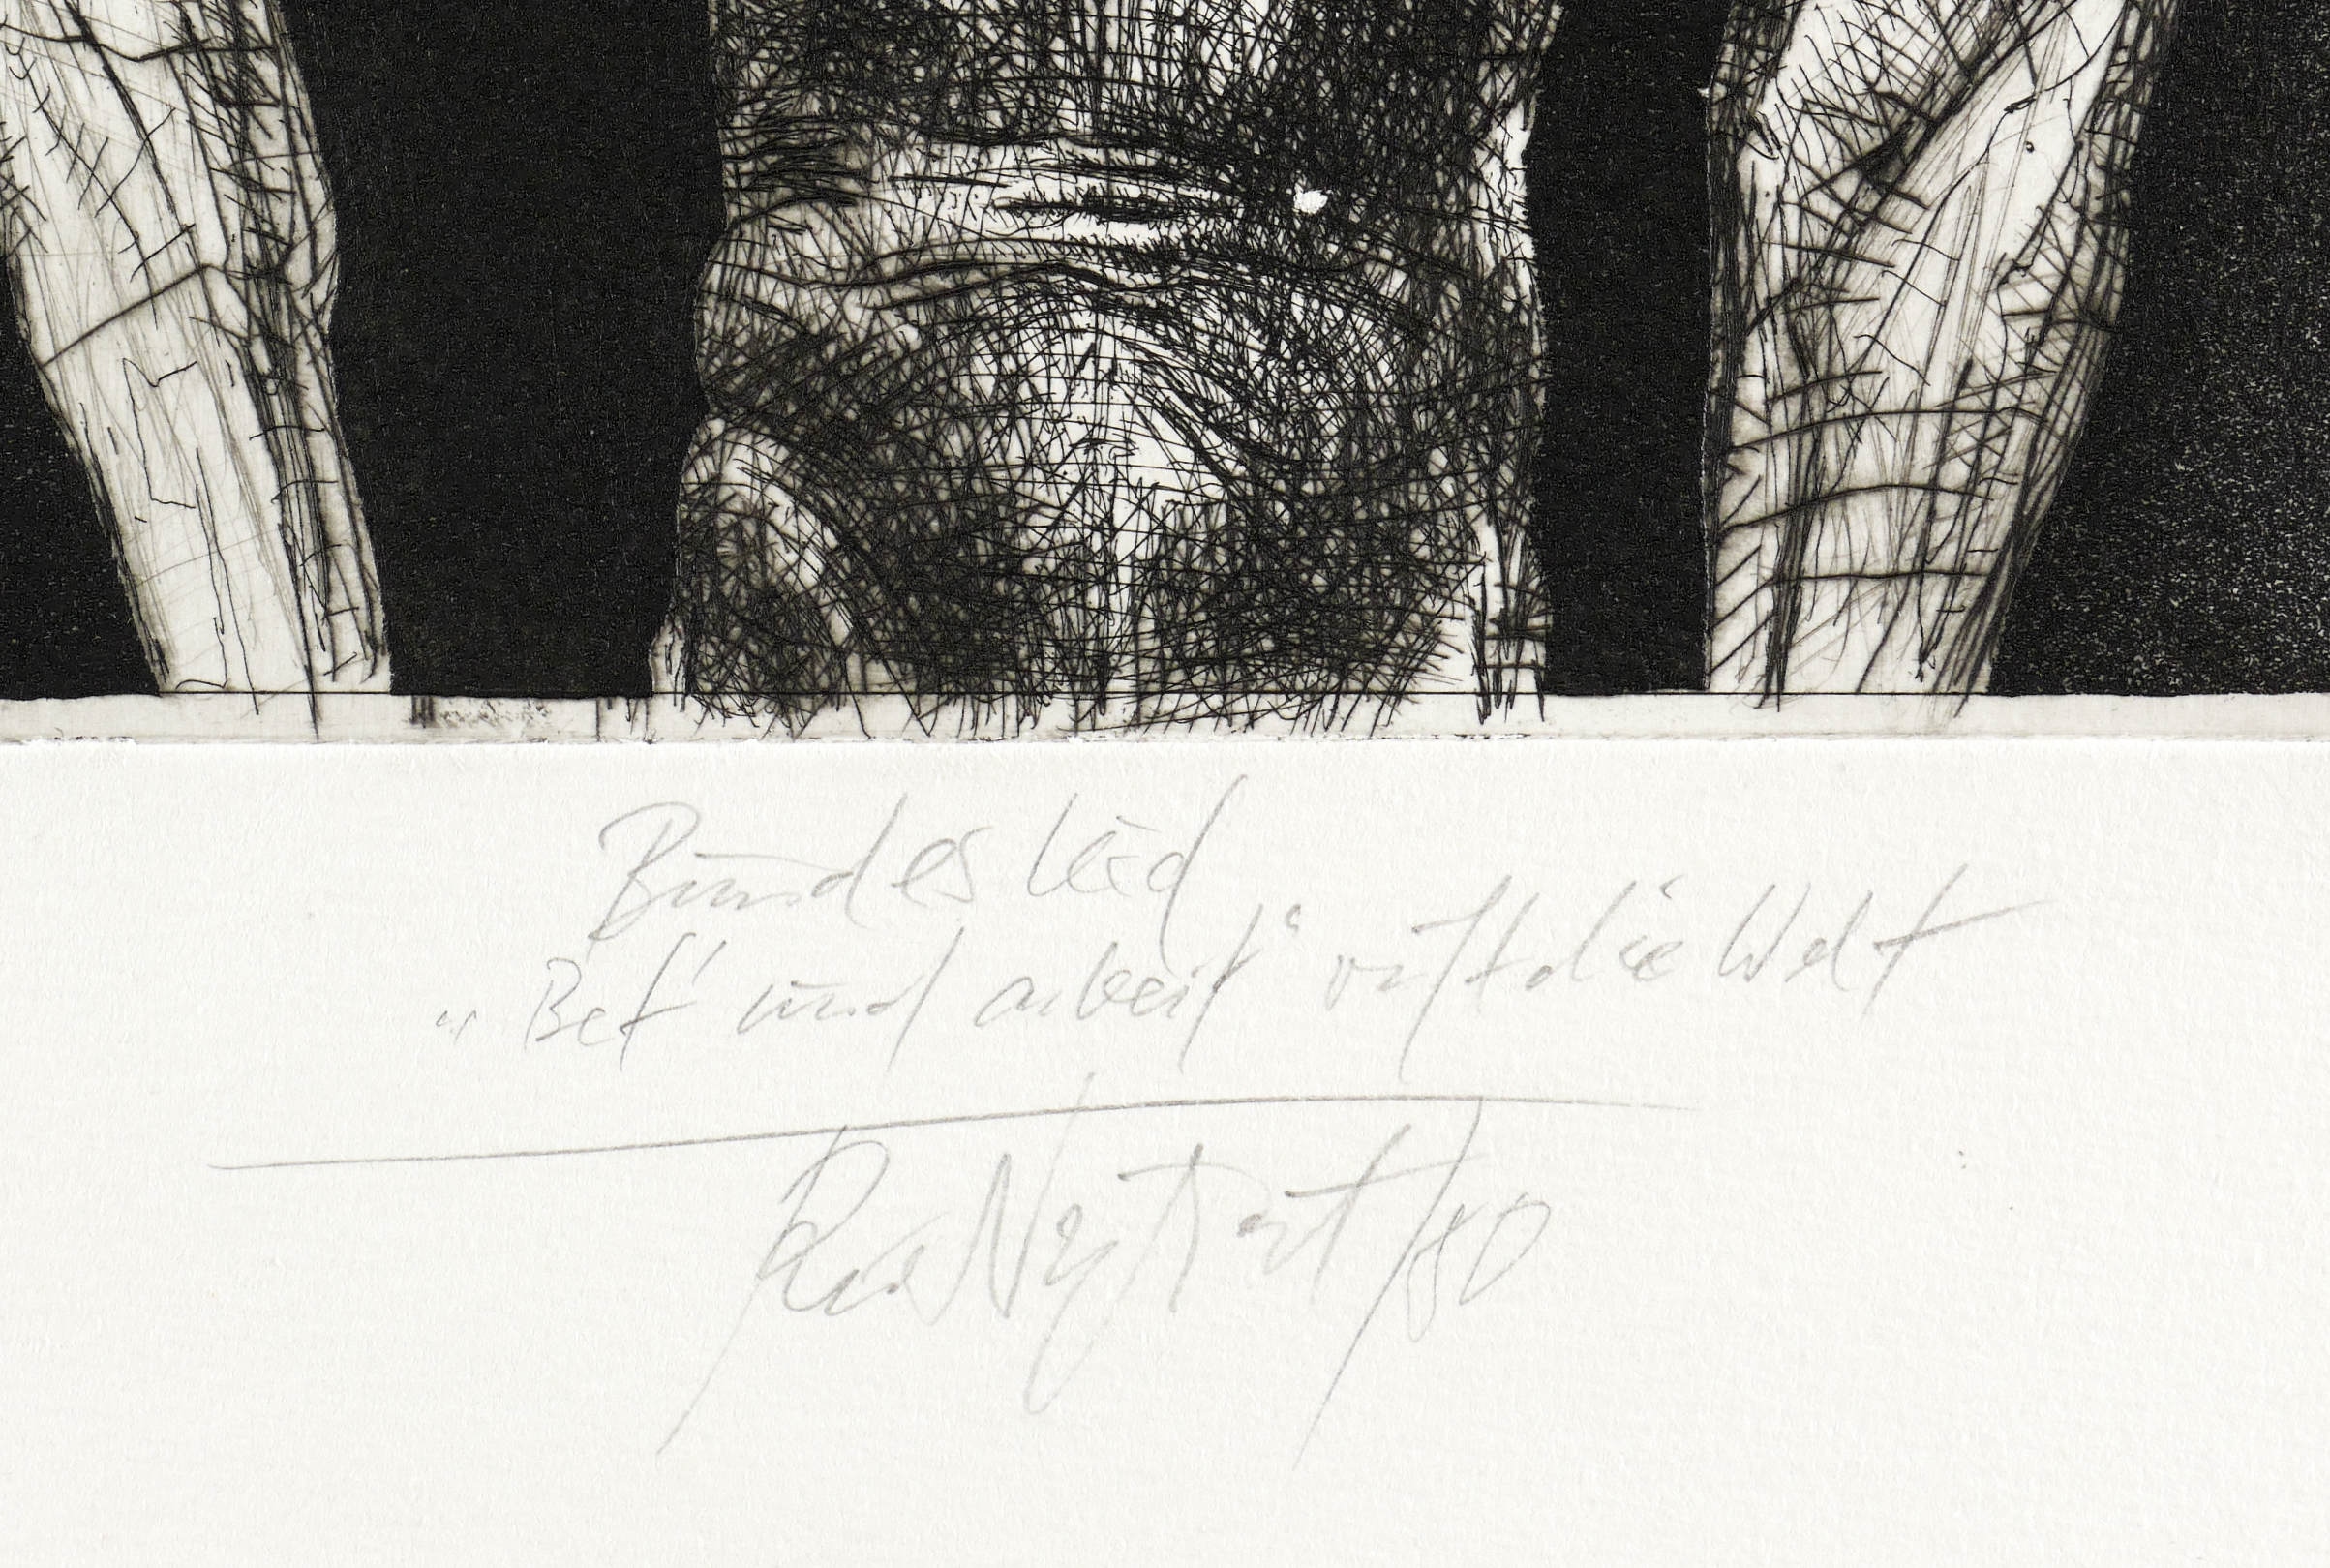 Bundeslied
„Bet' und arbeit“ ruft die Welt
/80